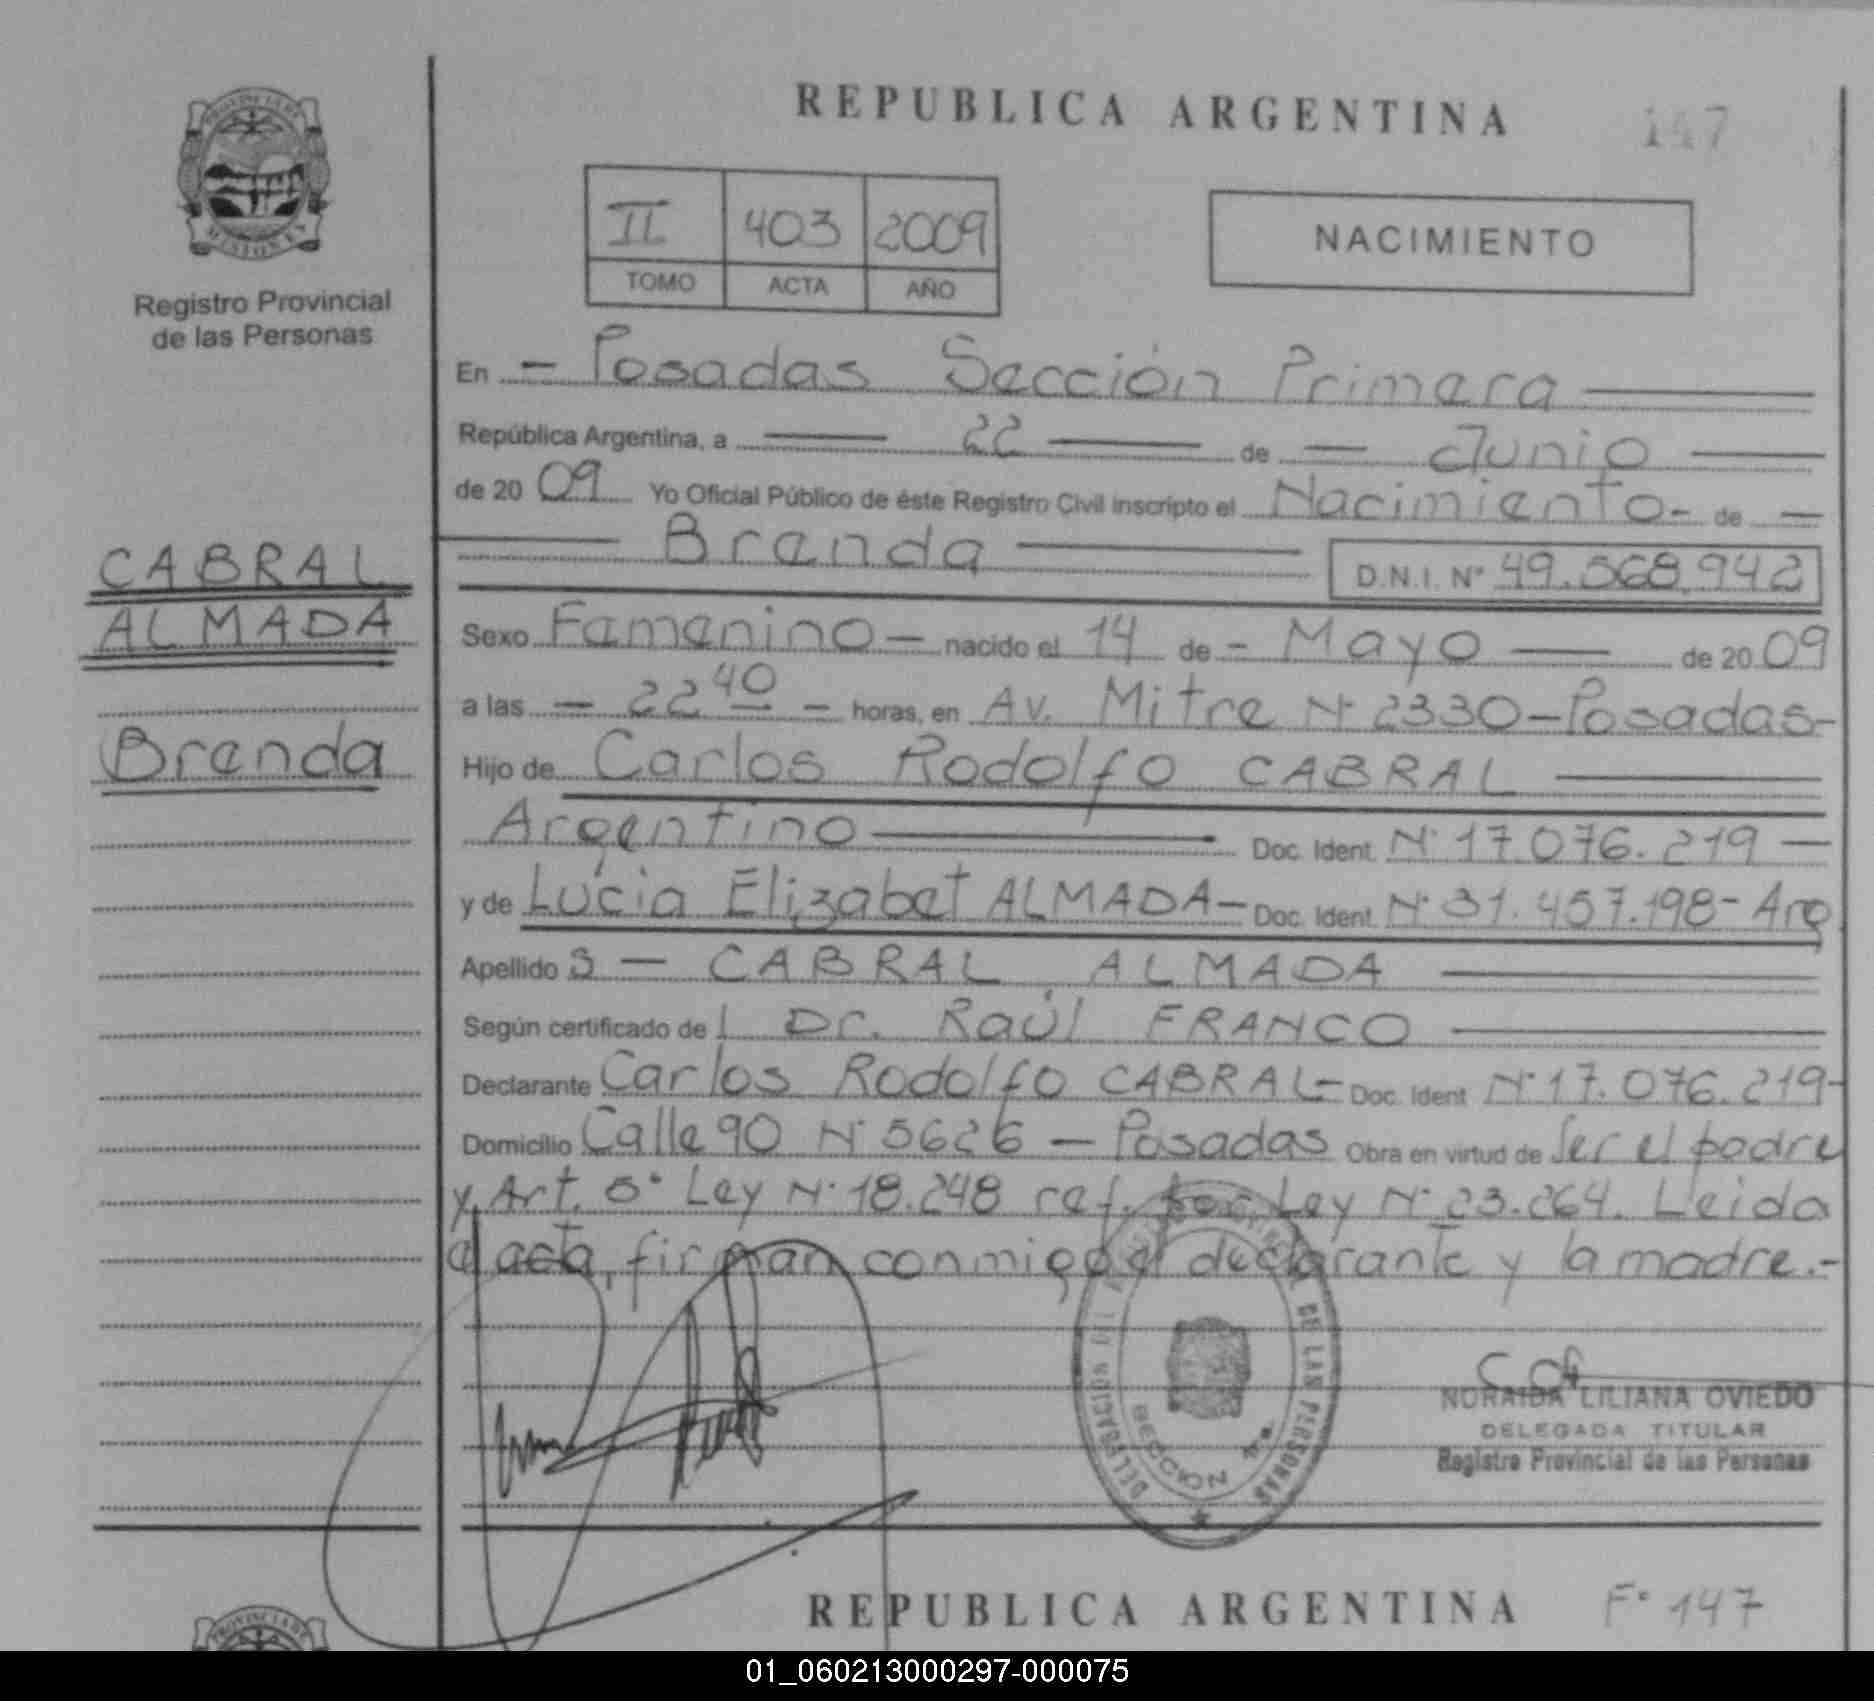 REPUBLICA ARGENTINA
147
PROVINCIA DE
MISIONES
Registro Provincial
de las Personas
II 403 2009
TOMO ACTA AÑO
NACIMIENTO
En - Posadas Sección Primera
República Argentina, a 22 de - Junio
de 20 09 Yo Oficial Público de éste Registro Civil inscripto el Nacimiento - de -
Brenda D.N.I. Nº 49.568.942
CABRAL
ALMADA
Brenda
Sexo Femenino - nacido el 14 de - Mayo de 20 09
a las - 22 40 - horas, en Av. Mitre Nº 2330 - Posadas -
Hijo de Carlos Rodolfo CABRAL
Argentino Doc. Ident. Nº 17.076.219 -
y de Lucía Elizabet ALMADA - Doc. Ident. Nº 31.457.198 - Arg
Apellido s - CABRAL ALMADA
Según certificado de l Dr. Raúl FRANCO
Declarante Carlos Rodolfo CABRAL - Doc. Ident Nº 17.076.219 -
Domicilio Calle 90 Nº 5626 - Posadas Obra en virtud de Ser el padre
y Art. 5º Ley Nº 18.248 ref. por Ley Nº 23.264. Leida
el acta, firman conmigo el declarante y la madre.-
DELEGACION DEL REGISTRO PROVINCIAL DE LAS PERSONAS
SECCION 1ra.
NORAIDA LILIANA OVIEDO
DELEGADA TITULAR
Registro Provincial de las Personas
REPUBLICA ARGENTINA
Fº 147
PROVINCIA DE
01_060213000297-000075